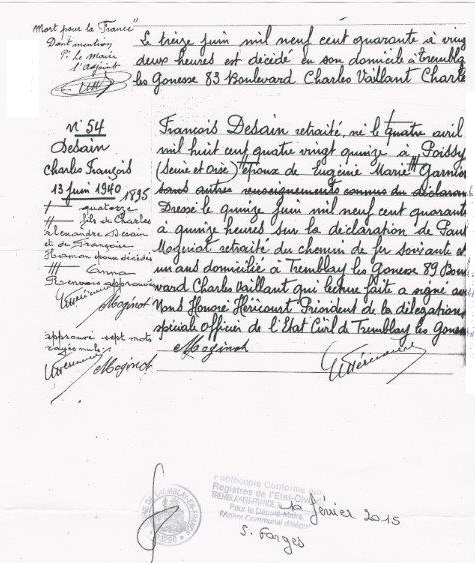 Mort pour la France"
Dont mention
P. le Maire
l'adjoint
n° 54
Desain
Charles François
13 juin 1940
1895
+ quatorze
++ fils de Charles
Alexandre Desain
et de Françoise
Hamon époux décédés
+++ Anna
Renvois approuvés
Moginot
approuvé sept mots
rayés nuls
Moginot
Le treize juin mil neuf cent quarante à vingt
deux heures est décédé en son domicile à Trembla
les Gonesse 83 Boulevard Charles Vaillant Charle
François Desain retraité, né le quatre avril
mil huit cent quatre vingt quinze à Poissy
(Seine et Oise) époux de Eugénie Marie Garnier
sans autres renseignements connus du déclaran
Dressé le quinze juin mil neuf cent quarante
à quinze heures sur la déclaration de Paul
Moginot retraité du chemin de fer soixante et
un ans domicilié à Tremblay les Gonesse 89 Boul
vard Charles Vaillant qui lecture faite a signé av
Nous Honoré Héricourt Président de la délégation
spéciale Officier de l'Etat Civil de Tremblay les Gones
Moginot
Photocopie Conforme
Registres de l'Etat-Civil
TREMBLAY-EN-FRANCE
Pour le Député-Maire,
l'Agent Communal délégué
février 2015
S. Farges